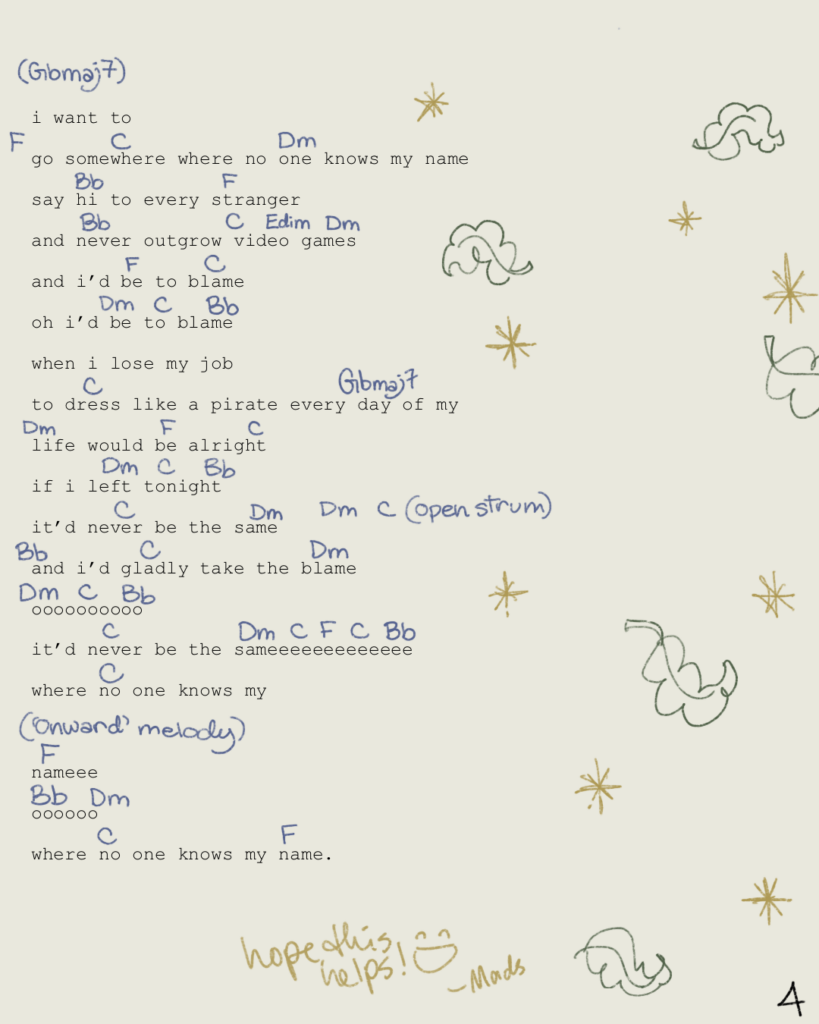 (Gbmaj7)
i want to
F C Dm
go somewhere where no one knows my name
Bb F
say hi to every stranger
Bb C Edim Dm
and never outgrow video games
F C
and i'd be to blame
Dm C Bb
oh i'd be to blame
when i lose my job
C Gbmaj7
to dress like a pirate every day of my
Dm F C
life would be alright
Dm C Bb
if i left tonight
C Dm Dm C (open strum)
it'd never be the same
Bb C Dm
and i'd gladly take the blame
Dm C Bb
oooooooooo
C Dm C F C Bb
it'd never be the sameeeeeeeeeeeee
C
where no one knows my
('Onward' melody)
F
nameee
Bb Dm
oooooo
C F
where no one knows my name.
hope this
helps!
-Mads
4